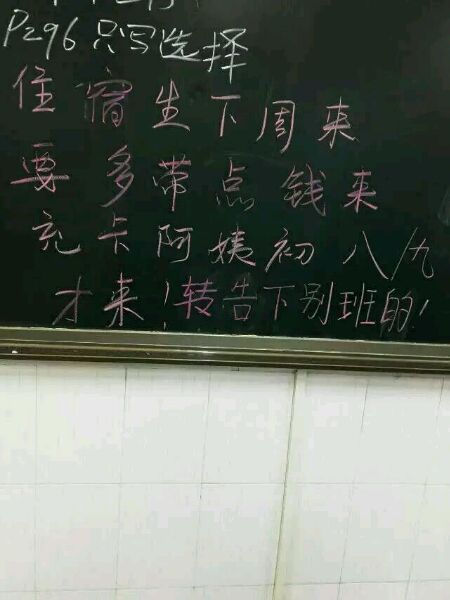 P296 只写选择
住宿生下周来
要多带点钱来
充卡阿姨初八/九
才来！转告下别班的！